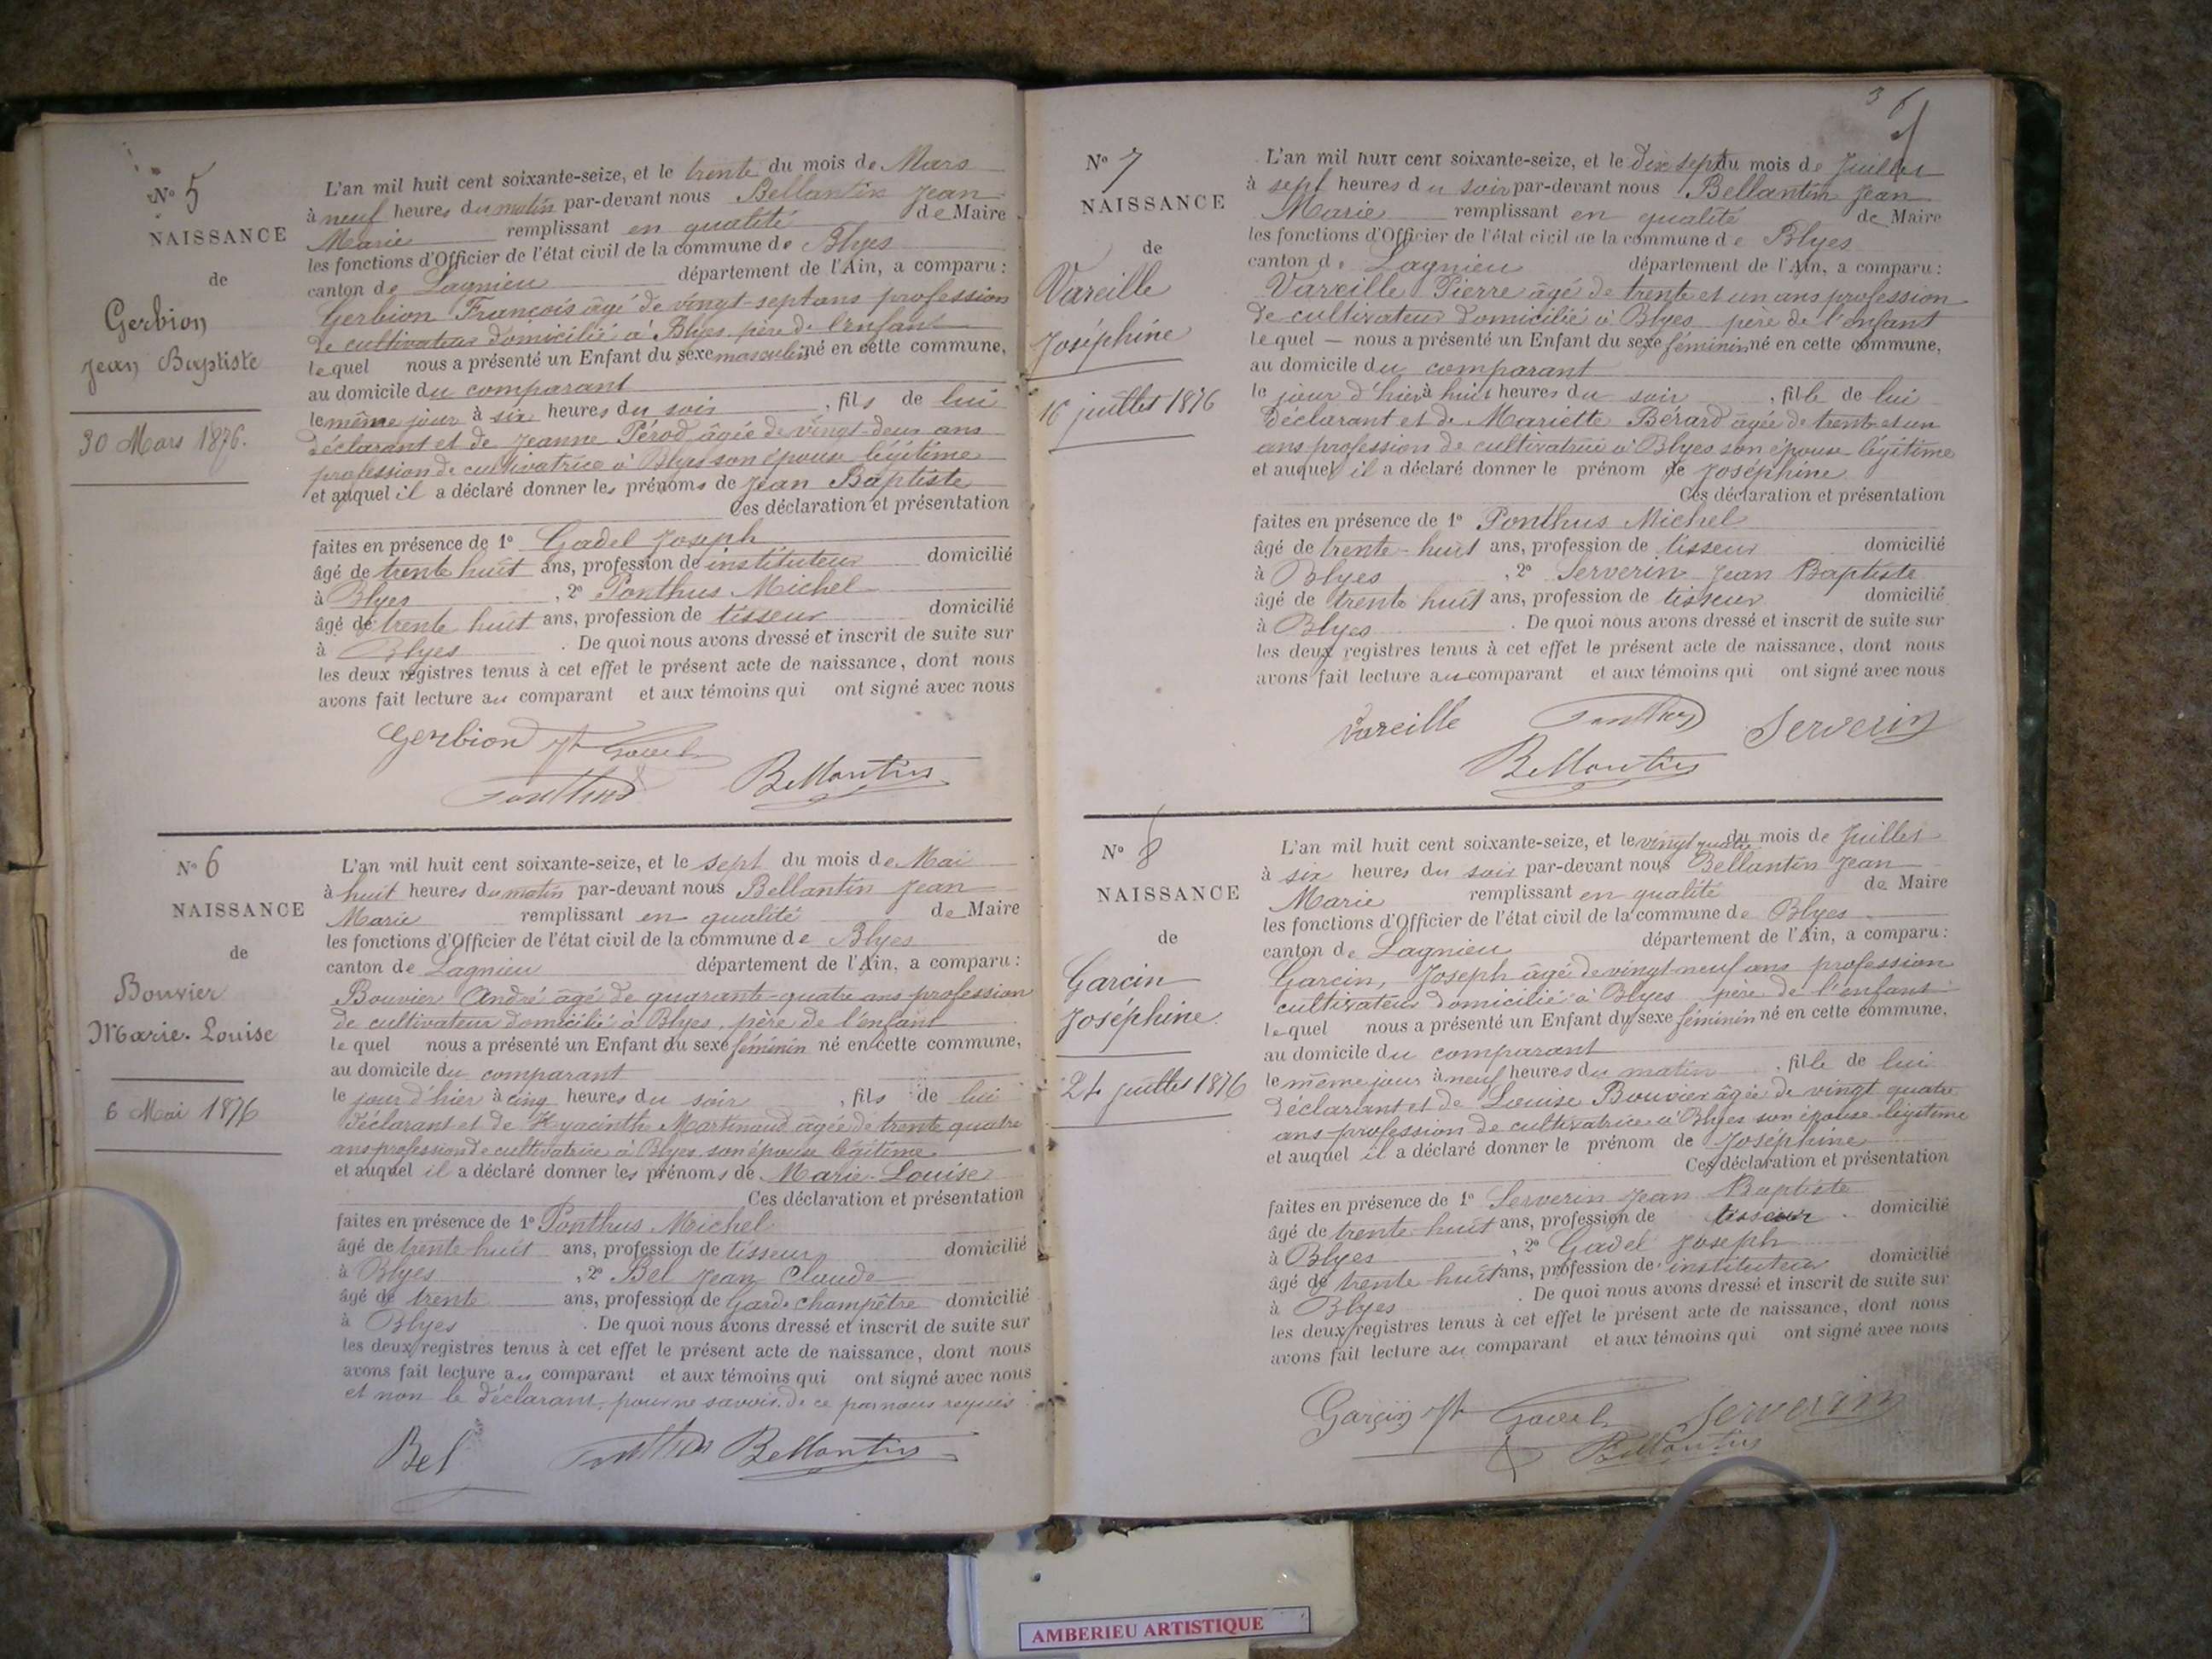 N° 5
NAISSANCE
de
Gerbion
Jean Baptiste
30 Mars 1876.
L'an mil huit cent soixante-seize, et le trente du mois de Mars
à neuf heures du matin par-devant nous Bellantin Jean
Marie remplissant en qualité de Maire
les fonctions d'Officier de l'état civil de la commune de Blyes
canton de Lagnieu département de l'Ain, a comparu :
Gerbion François âgé de vingt-sept ans profession
de cultivateur domicilié à Blyes père de l'enfant
lequel nous a présenté un Enfant du sexe masculin né en cette commune,
au domicile du comparant
le même jour à six heures du soir , fils de lui
déclarant et de Jeanne Pérod âgée de vingt-deux ans
profession de cultivatrice à Blyes son épouse légitime
et auquel il a déclaré donner les prénoms de Jean Baptiste
Ces déclaration et présentation
faites en présence de 1° Gadel Joseph
âgé de trente huit ans, profession de instituteur domicilié
à Blyes , 2° Ponthus Michel
âgé de trente huit ans, profession de tisseur domicilié
à Blyes . De quoi nous avons dressé et inscrit de suite sur
les deux registres tenus à cet effet le présent acte de naissance, dont nous
avons fait lecture au comparant et aux témoins qui ont signé avec nous
Gerbion Jh Gadel
Ponthus Bellantin
N° 6
NAISSANCE
de
Bouvier
Marie-Louise
6 Mai 1876
L'an mil huit cent soixante-seize, et le sept du mois de Mai
à huit heures du matin par-devant nous Bellantin Jean
Marie remplissant en qualité de Maire
les fonctions d'Officier de l'état civil de la commune de Blyes
canton de Lagnieu département de l'Ain, a comparu :
Bouvier André âgé de quarante-quatre ans profession
de cultivateur domicilié à Blyes, père de l'enfant
lequel nous a présenté un Enfant du sexe féminin né en cette commune,
au domicile du comparant
le jour d'hier à cinq heures du soir , fils de lui
déclarant et de Hyacinthe Martinaud âgée de trente quatre
ans profession de cultivatrice à Blyes son épouse légitime
et auquel il a déclaré donner les prénoms de Marie-Louise
Ces déclaration et présentation
faites en présence de 1° Ponthus Michel
âgé de trente huit ans, profession de tisseur domicilié
à Blyes , 2° Bel Jean Claude
âgé de trente ans, profession de Garde champêtre domicilié
à Blyes . De quoi nous avons dressé et inscrit de suite sur
les deux registres tenus à cet effet le présent acte de naissance, dont nous
avons fait lecture au comparant et aux témoins qui ont signé avec nous
et non le déclarant, pour ne savoir de ce par nous requis
Bel Ponthus Bellantin
3
N° 7
NAISSANCE
de
Vareille
Joséphine
16 juillet 1876
L'an mil huit cent soixante-seize, et le dix sept du mois de Juillet
à sept heures du soir par-devant nous Bellantin Jean
Marie remplissant en qualité de Maire
les fonctions d'Officier de l'état civil de la commune de Blyes
canton de Lagnieu département de l'Ain, a comparu :
Vareille Pierre âgé de trente et un ans profession
de cultivateur domicilié à Blyes père de l'enfant
lequel — nous a présenté un Enfant du sexe féminin né en cette commune,
au domicile du comparant
le jour d'hier à huit heures du soir , fille de lui
déclarant et de Mariette Bérard âgée de trente et un
ans profession de cultivatrice à Blyes son épouse légitime
et auquel il a déclaré donner le prénom de Joséphine
Ces déclaration et présentation
faites en présence de 1° Ponthus Michel
âgé de trente-huit ans, profession de tisseur domicilié
à Blyes , 2° Serverin Jean Baptiste
âgé de trente huit ans, profession de tisseur domicilié
à Blyes . De quoi nous avons dressé et inscrit de suite sur
les deux registres tenus à cet effet le présent acte de naissance, dont nous
avons fait lecture au comparant et aux témoins qui ont signé avec nous
Vareille Ponthus Serverin
Bellantin
N° 8
NAISSANCE
de
Garcin
Joséphine
24 juillet 1876
L'an mil huit cent soixante-seize, et le vingt quatre du mois de Juillet
à six heures du soir par-devant nous Bellantin Jean
Marie remplissant en qualité de Maire
les fonctions d'Officier de l'état civil de la commune de Blyes
canton de Lagnieu département de l'Ain, a comparu :
Garcin, Joseph âgé de vingt-neuf ans profession
cultivateur domicilié à Blyes père de l'enfant
lequel nous a présenté un Enfant du sexe féminin né en cette commune,
au domicile du comparant
le même jour à neuf heures du matin , fille de lui
déclarant et de Louise Bouvier âgée de vingt quatre
ans profession de cultivatrice à Blyes son épouse légitime
et auquel il a déclaré donner le prénom de Joséphine
Ces déclaration et présentation
faites en présence de 1° Serverin Jean Baptiste
âgé de trente-huit ans, profession de tisseur domicilié
à Blyes , 2° Gadel Joseph
âgé de trente huit ans, profession de instituteur domicilié
à Blyes . De quoi nous avons dressé et inscrit de suite sur
les deux registres tenus à cet effet le présent acte de naissance, dont nous
avons fait lecture au comparant et aux témoins qui ont signé avec nous
Garçin Jh Gadel Serverin
Bellantin
AMBERIEU ARTISTIQUE